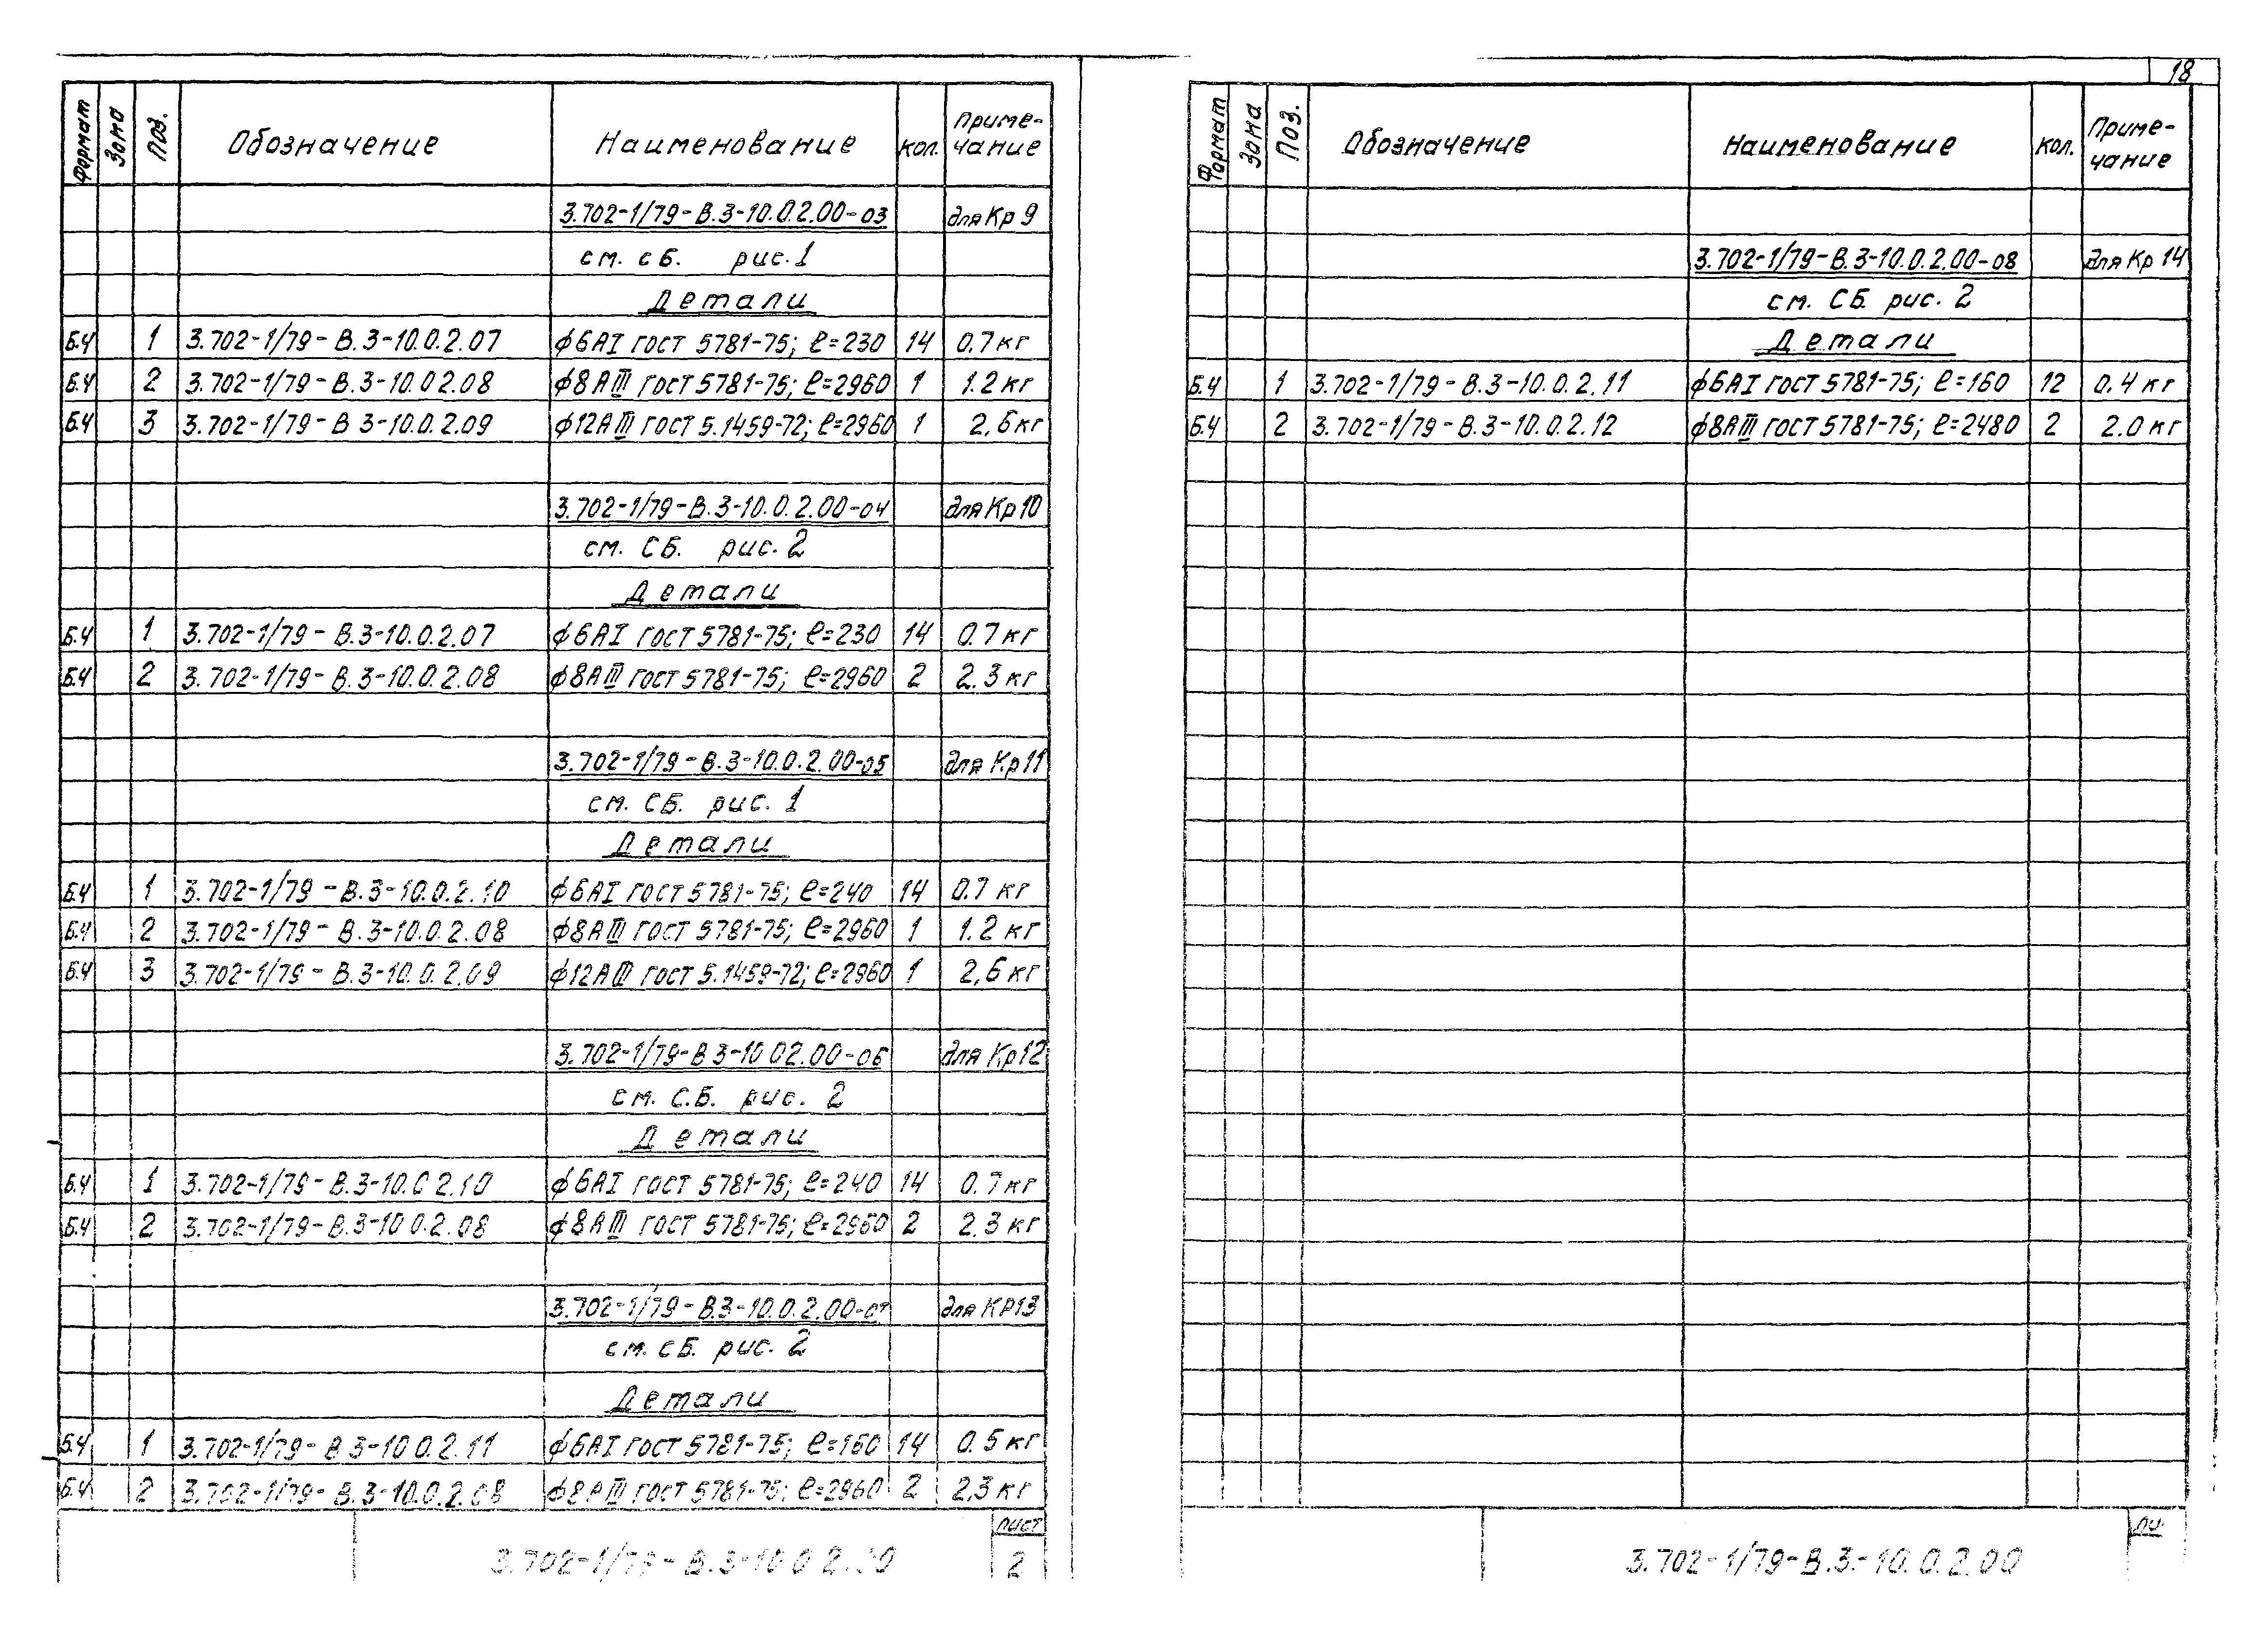 18
Формат Зона Поз. Обозначение Наименование кол. Приме-
чание
3.702-1/79-В.3-10.0.2.00-03 для Кр 9
см. сб. рис. 1
Детали
Б.Ч 1 3.702-1/79-В.3-10.0.2.07 ф6АI ГОСТ 5781-75; ℓ=230 14 0.7 кг
Б.Ч 2 3.702-1/79-В.3-10.0 2.08 ф8АIII ГОСТ 5781-75; ℓ=2960 1 1.2 кг
Б.Ч 3 3.702-1/79-В 3-10.0.2.09 ф12АIII ГОСТ 5.1459-72; ℓ=2960 1 2,6 кг
3.702-1/79-В.3-10.0.2.00-04 для Кр 10
см. СБ. рис. 2
Детали
Б.Ч 1 3.702-1/79-В.3-10.0.2.07 ф6АI ГОСТ 5781-75; ℓ=230 14 0.7 кг
Б.Ч 2 3.702-1/79-В.3-10.0.2.08 ф8АIII ГОСТ 5781-75; ℓ=2960 2 2.3 кг
3.702-1/79-В.3-10.0.2.00-05 для Кр 11
см. СБ. рис. 1
Детали
Б.Ч 1 3.702-1/79-В.3-10.0.2.10 ф6АI ГОСТ 5781-75; ℓ=240 14 0.7 кг
Б.Ч 2 3.702-1/79-В.3-10.0.2.08 ф8АIII ГОСТ 5781-75; ℓ=2960 1 1.2 кг
Б.Ч 3 3.702-1/79-В.3-10.0.2.09 ф12АIII ГОСТ 5.1459-72; ℓ=2960 1 2,6 кг
3.702-1/79-В 3-10 02.00-06 для Кр 12
см. С.Б. рис. 2
Детали
Б.Ч 1 3.702-1/79-В.3-10.0 2.10 ф6АI ГОСТ 5781-75; ℓ=240 14 0.7 кг
Б.Ч 2 3.702-1/79-В.3-10 0.2.08 ф8АIII ГОСТ 5781-75; ℓ=2960 2 2.3 кг
3.702-1/79-В.3-10.0.2.00-07 для КР13
см. сБ. рис. 2
Детали
Б.Ч 1 3.702-1/79-В.3-10 0.2.11 ф6АI ГОСТ 5781-75; ℓ=160 14 0.5 кг
Б.Ч 2 3.702-1/79-В.3-10.0.2.08 ф8АIII ГОСТ 5781-75; ℓ=2960 2 2,3 кг
3.702-1/79-В.3-10 0 2.00
лист
2
Формат Зона Поз. Обозначение Наименование кол. Приме-
чание
3.702-1/79-В.3-10.0.2.00-08 для Кр 14
см. СБ. рис. 2
Детали
Б.Ч 1 3.702-1/79-В.3-10.0.2.11 ф6АI ГОСТ 5781-75; ℓ=160 12 0.4 кг
Б.Ч 2 3.702-1/79-В.3-10.0.2.12 ф8АIII ГОСТ 5781-75; ℓ=2480 2 2.0 кг
3.702-1/79-В.3.-10.0.2.00
ли